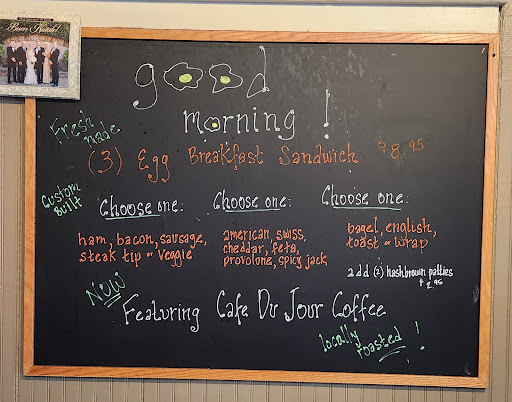 good
morning!
Fresh
made
(3) Egg Breakfast Sandwich $8.95
Custom
Built
Choose one: Choose one: Choose one:
ham, bacon, sausage,
steak tip or veggie
american, swiss,
cheddar, feta,
provolone, spicy jack
bagel, english,
toast or wrap
add (2) hashbrown patties
$2.95
NOW
Featuring Cafe Du Jour Coffee
locally
roasted!